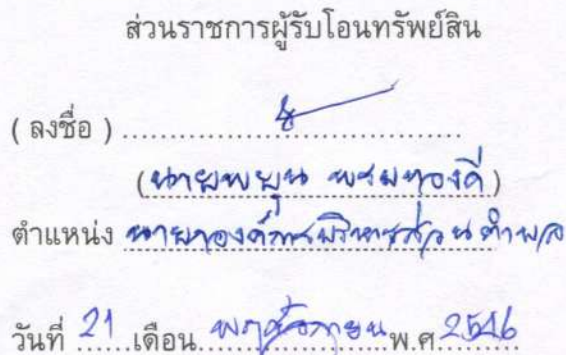 ส่วนราชการผู้รับโอนทรัพย์สิน
( ลงชื่อ ) ..........................................
(นายพยุน พรมทองดี)
ตำแหน่ง นายกองค์การบริหารส่วนตำบล
วันที่ 21 เดือน พฤศจิกายน พ.ศ. 2546